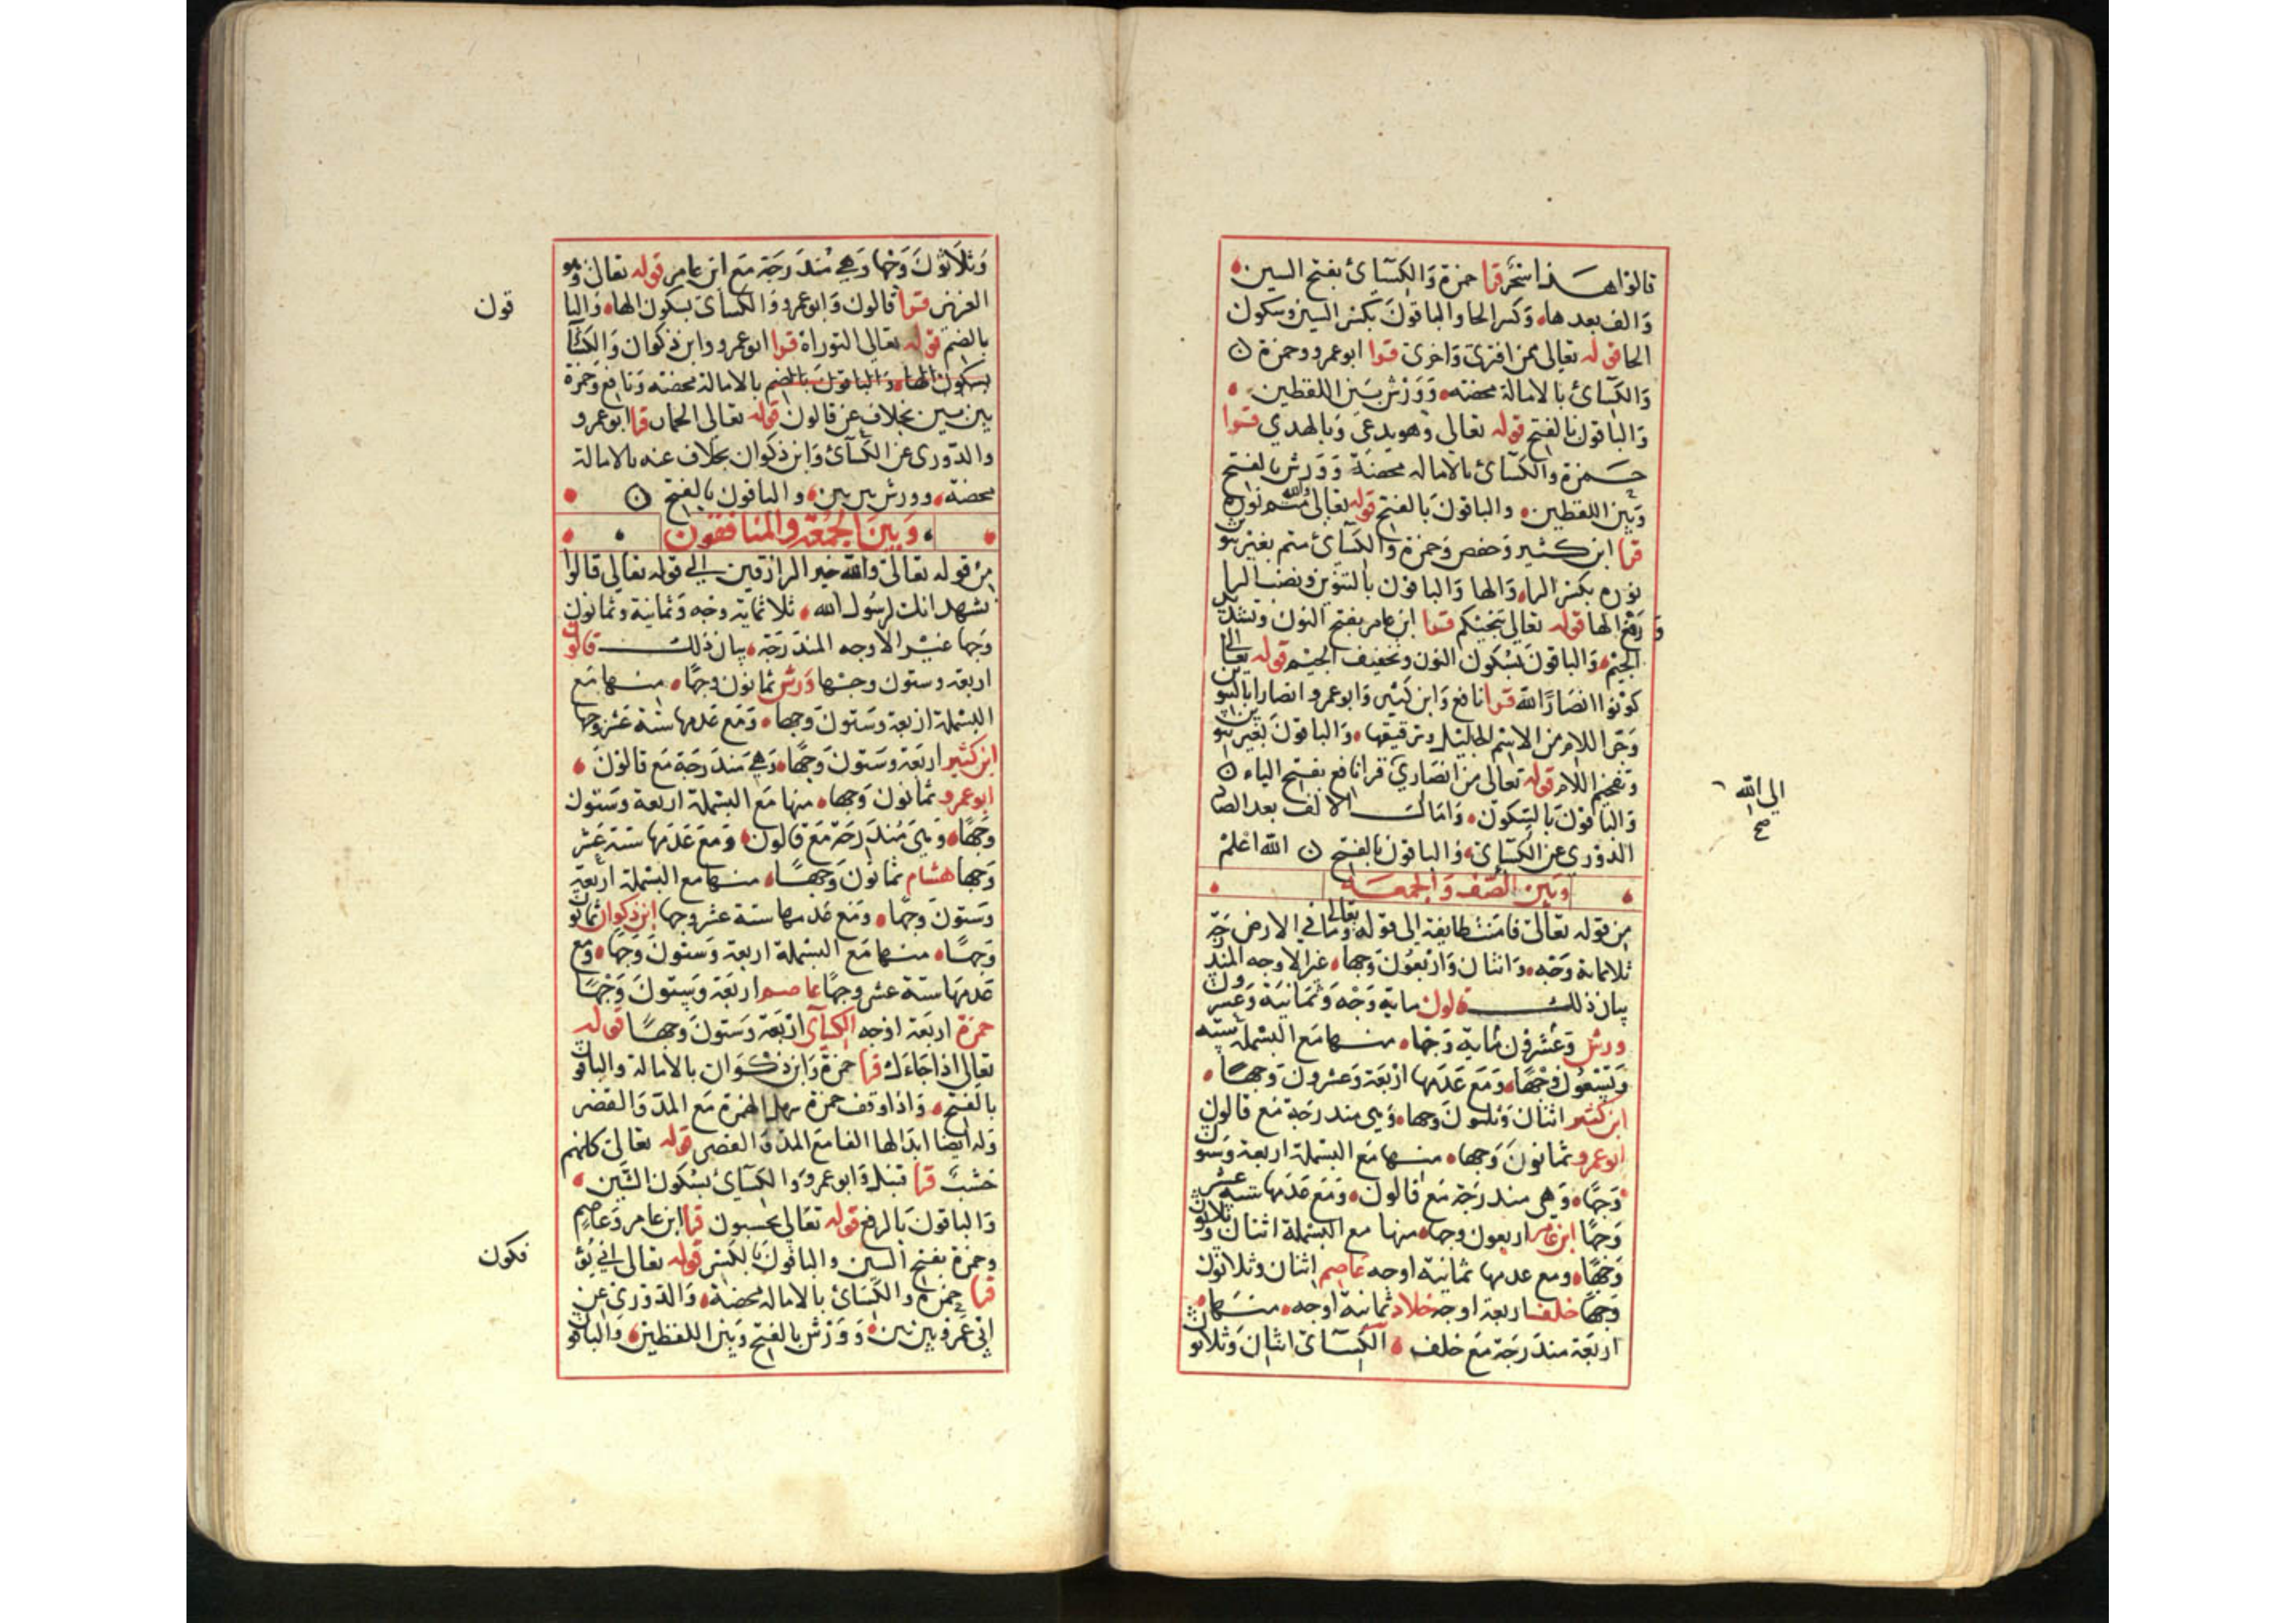 قالوا هذا سحر قرا حمزة وَالكسآئ بفتح السين
وَالف بعدها وَكسر الحا والباقونَ بكسر السين وسكون
الحا قوله تعالى ممن افترى وَاخرى قرا ابوعمرو وحمزة
وَالكسآئ بالامالة محضه وَوَرش بَين اللفظين
وَالباقون بالفتح قوله تعالى وَهو يدعى وَبالهدي قرا
حمزة والكسآئ بالاماله محضَة وَوَرش بالفتح
وَبين اللفظين والباقونَ بالفتح قوله تعالى والله متم نوره
قرا ابن كثير وَحفص وَحمزة وَالكسآئ متم بغير تنوين
نوره بكسر الراء وَالها وَالباقون بالتنوين ونصب الرا
وَرفع الها قوله تعالى تنجيكم قرا ابن عامر بفتح النون وتشديد
الجيم وَالباقونَ بسكون النون وتخفيف الجيم قوله تعالى
كونوا انصَارًا لله قرا نافع وَابن كثير وَابوعمرو انصارا بالتنوين
وَجر اللام من الاسم الجليل وترقيقها وَالباقونَ بغير تنوين
وتفخيم اللام قوله تعالى من انصَاري قرا نافع بفتح الياء
الى الله
صح
وَالباقونَ بالسكون وَامَال الالف بعد الصاد
الدوري عن الكسَائ وَالباقون بالفتح الله اعلم
وبين الصف وَالجمعة
من قوله تعالى فامَنت طايفة الى قوله تعالى وَمَا في الارض
ثلاثماية وَجه وَاثنان وَاربعُونَ وَجها غير الاوجه المندرجة
بيان ذلك قالون ماية وَجْه وَثمَانيَة وَعشرون
ورش وَعشرون ماية وَجها منها مَع البسملة ستة
وَتسعُون وَجْهًا وَمَع عَدَمها اربَعَة وَعشرون وَجهًا
ابن كثير اثنان وَثلاثونَ وجها وَهي مندرجَة مَع قالون
ابوعمرو ثمانونَ وَجها منها مَع البسملة اربعة وَستون
وَجهًا وَهي مندرجَة مَع قالون وَمَع عَدَمها ستة عشر
وَجهًا ابن عامر اربعون وجها منها مع البسملة اثنان وثلاثون
وَجهًا ومع عدمها ثمانية اوجه عاصم اثنان وثلاثون
وَجها خلف اربعة اوجه خلاد ثمانية اوجه منها
اربَعَة مندَرجَة مَع خلف الكسآئ اثنان وَثلاثون
وَثلاثونَ وَجها وَهي مُندَرجَة مَع ابن عامر قوله تعالى وَهو
العزيز قرا قالون وَابوعمرو وَالكسائ بسكون الها وَالباقون
بالضم قوله تعالى التوراة قرا ابوعمرو وابن ذكوان وَالكسآئ
بسكون الها وَالباقونَ بالضم بالامالة محضته وَنافع وَحمزة
بين بين بخلاف عن قالون قوله تعالى الحمار قرا ابوعمرو
والدوري عن الكسآئ وَابن ذكوان بخلاف عنه بالامالة
محضة وورش بين بين والباقون بالفتح
وَبينَ الجُمعَة والمنافقون
من قوله تعالى والله خير الرازقين الى قوله تعالى قالوا
نشهد انك لرسُول الله ثلاثماية وجه وَثمانية وثمانون
وَجها غير الاوجه المندرَجَة بيان ذلك قالون
اربعة وستون وجها وَرش ثمانون وجهًا منها مَع
البسملة اربعة وَستونَ وَجها وَمَع عَدمها ستة عَشر وجها
ابن كثير اربَعَة وَستونَ وَجهًا وَهي مَندَرجَة مَع قالونَ
ابوعمرو ثمانون وَجها منها مَع البسملة اربعة وَستون
وَجهًا وَهي مُندَرجَة مَعَ قالون وَمَع عَدَمها ستة عَشر
وَجها هشام ثمانونَ وَجهًا منها مع البسملة اربعة
وَستونَ وَجهًا وَمَع عَدمها ستة عشر وجها ابن ذكوان ثمانون
وَجهًا منها مَع البسملة اربعة وَستونَ وَجهًا وَمع
عَدمهَا ستة عشر وجهًا عاصم اربَعَة وَستونَ وَجْهًا
حمزة اربَعَة اوجه الكسآئ اربَعَة وَستونَ وَجهًا قوله
تعالى اذا جَاءَك قرا حمزة وَابن ذكوَان بالامالة والباقون
بالفتح وَاذا وَقف حمزة سهل الهمزة مَع المدّ وَالقصر
وَله ايضا ابدالها الفا مَع المدّ وَالقصر قوله تعالى كانهم
خشبٌ قرا قنبل وَابوعمرو وَالكسآئ بسْكون الشين
وَالباقونَ بالرفع قوله تعَالى يحسبون قرا ابن عامر وَعَاصِم
وحمزة بفتح السين والباقونَ بالكسر قوله تعالى انى يؤفكون
قرا حمزة والكسَائ بالاماله محضة وَالدَوري عن
ابي عَمرو بين بين وَوَرش بالفتح وَبين اللفظين وَالباقون